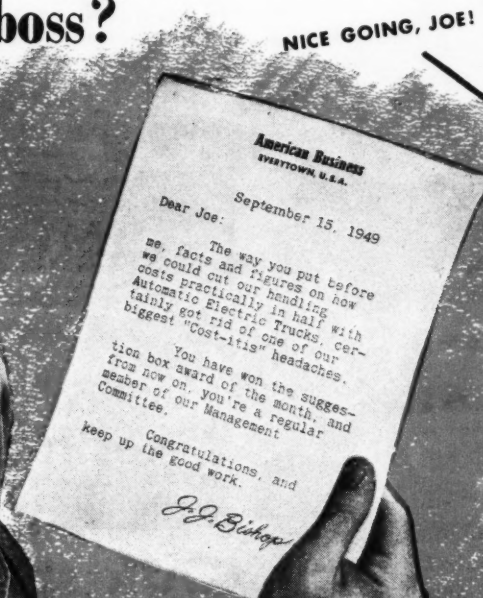 boss?
NICE GOING, JOE!
American Business
EVERYTOWN, U.S.A.
September 15, 1949
Dear Joe:
The way you put before
me, facts and figures on how
we could cut our handling
costs practically in half with
Automatic Electric Trucks, cer-
tainly got rid of one of our
biggest "Cost-itis" headaches.
You have won the sugges-
tion box award of the month, and
from now on, you're a regular
member of our Management
Committee.
Congratulations, and
keep up the good work.
J.J. Bishop